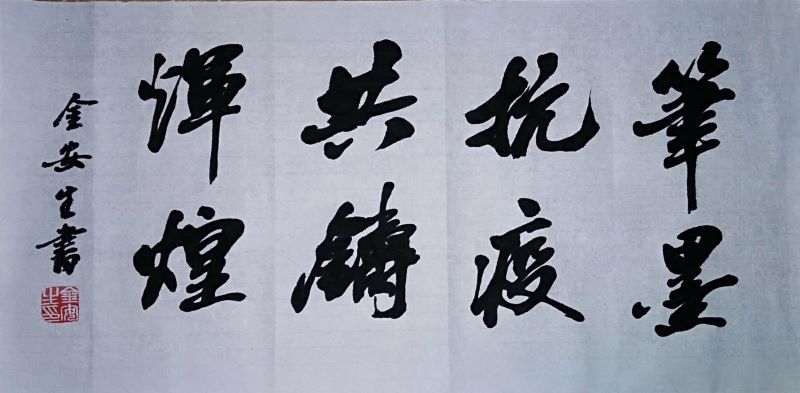 筆墨
抗疫
共鑄
輝煌
金安生書